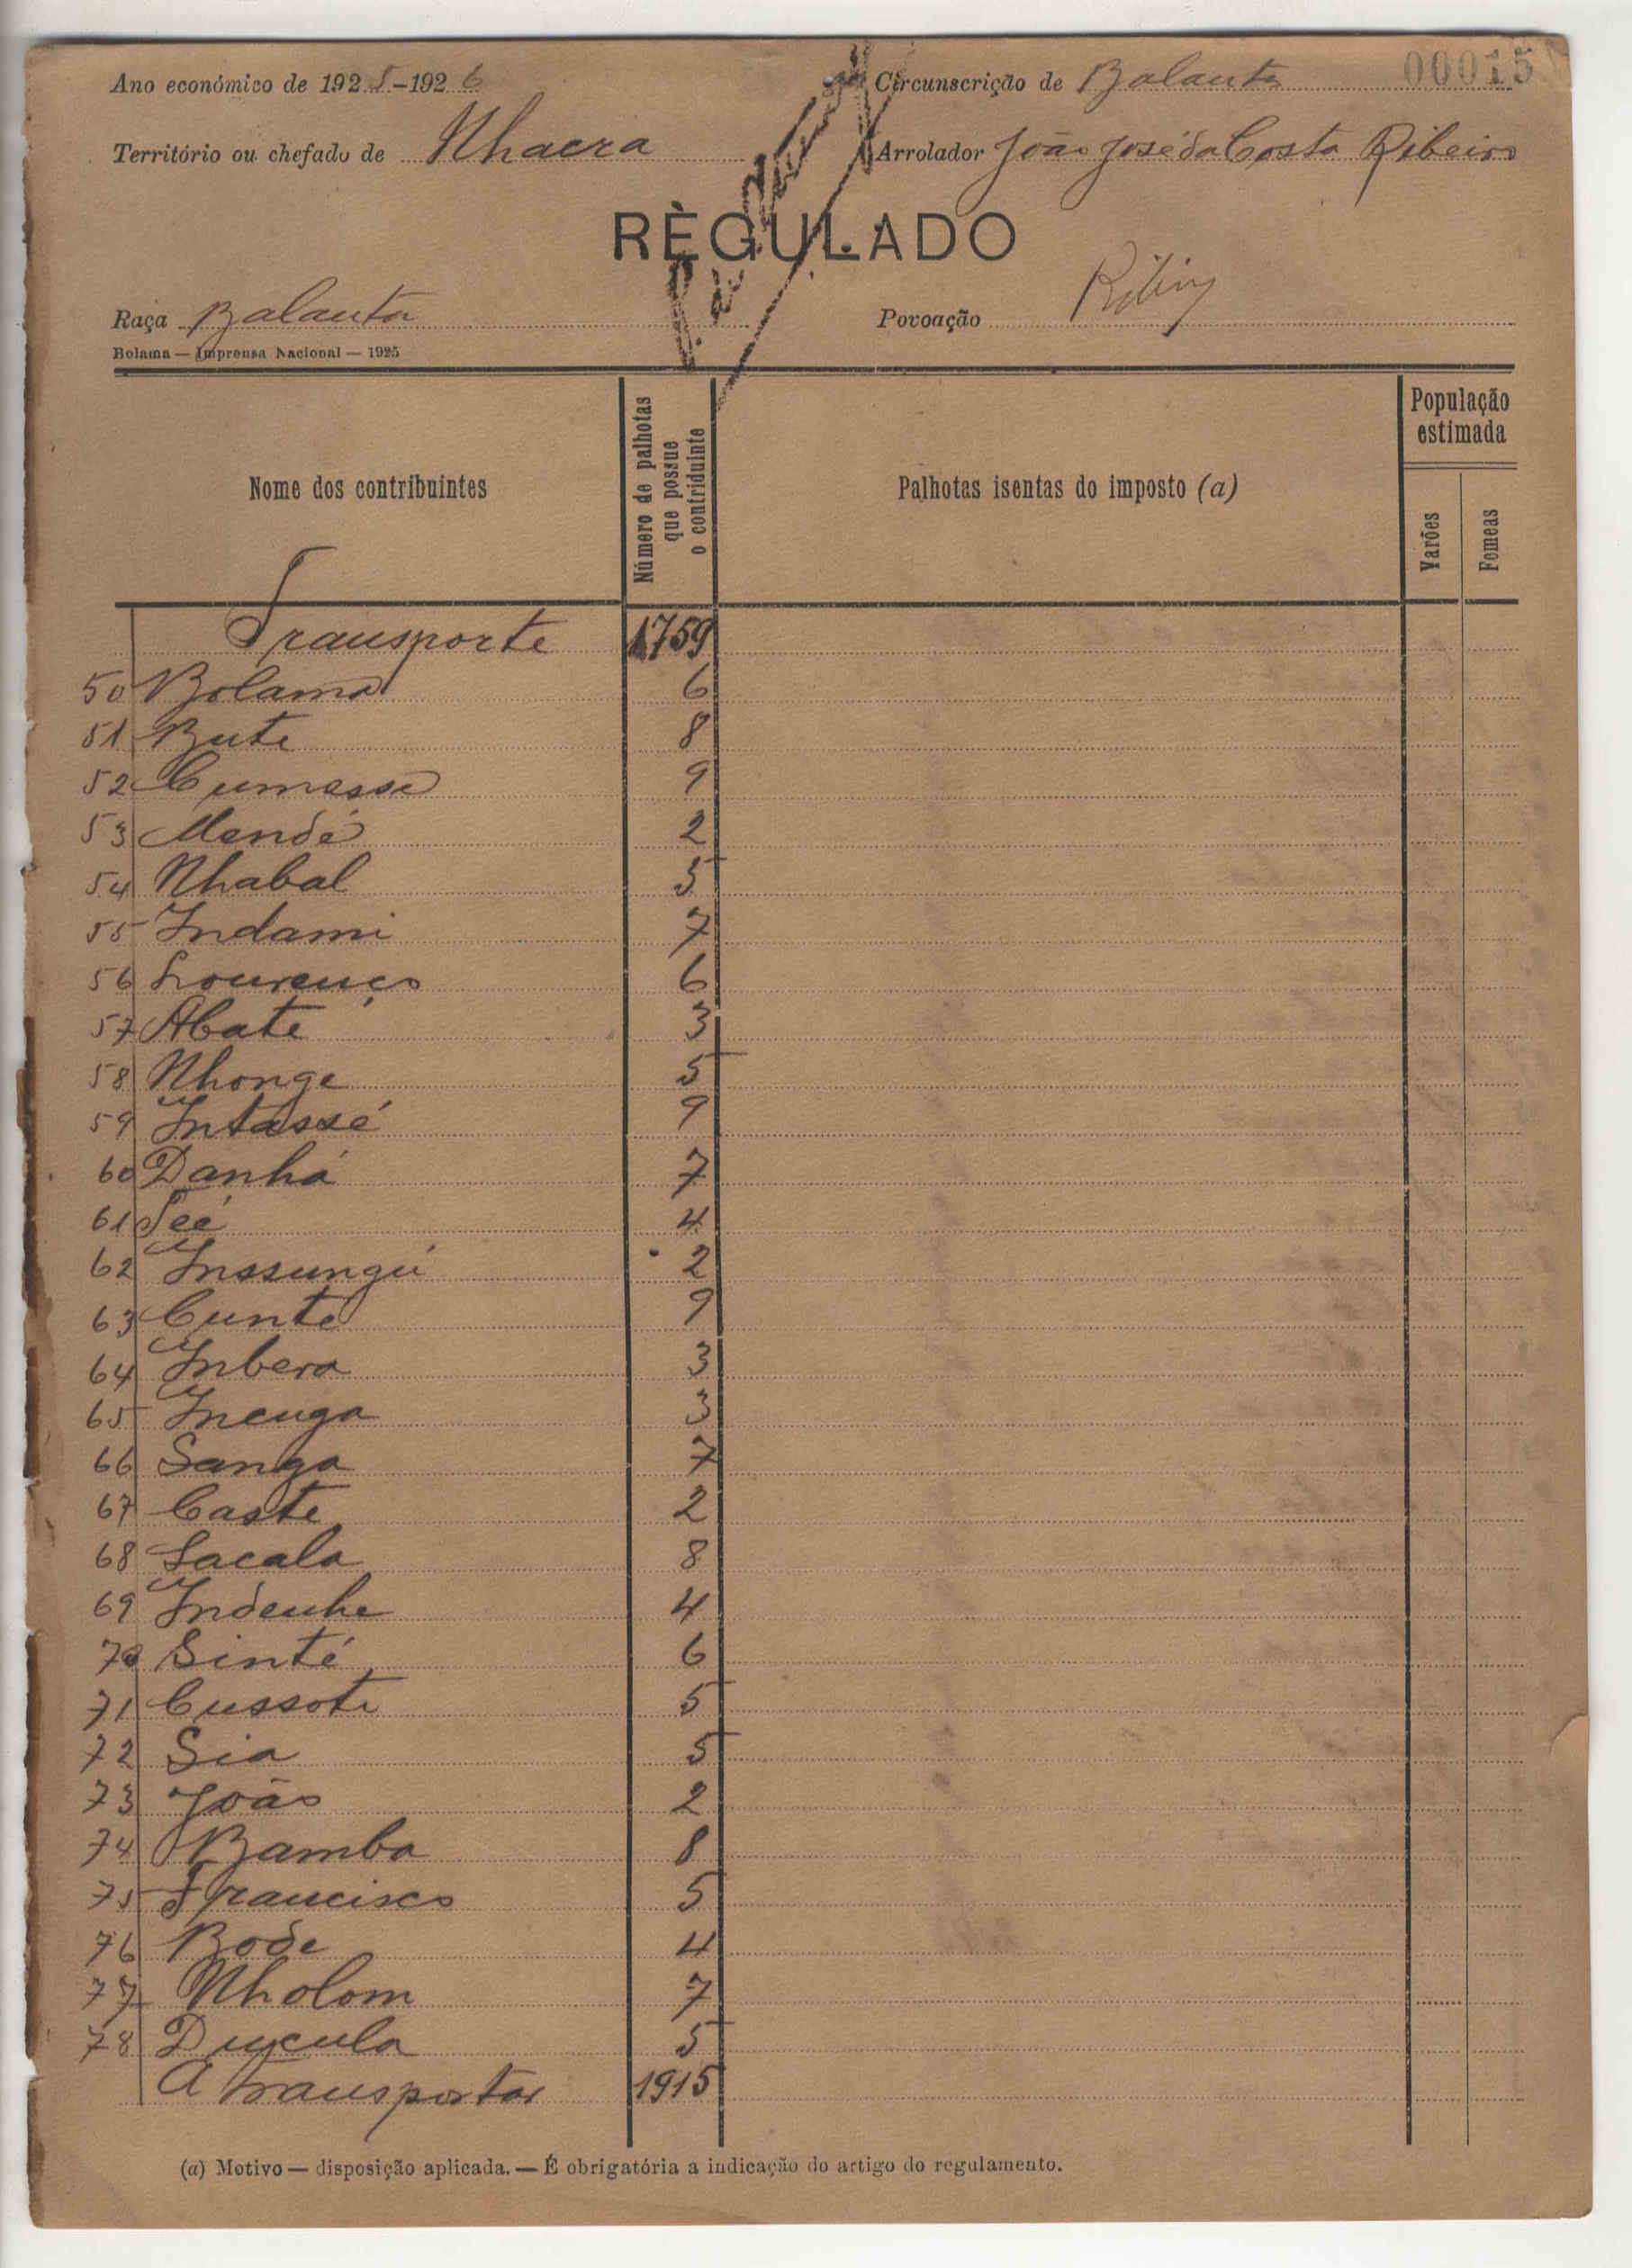 00015
Ano económico de 1925-1926 Circunscrição de Balanta
Território ou chefado de Nhacra Arrolador João José da Costa Ribeiro
RÈGULADO
Raça Balanta Povoação
Bolama — Imprensa Nacional — 1925
Nome dos contribuintes
Número de palhotas que possue o contriduinte
Palhotas isentas do imposto (a)
População estimada
Varões
Femeas
Transporte 1759
50 Bolama 6
51 Bute 8
52 Cumesse 9
53 Mendé 2
54 Nhabal 5
55 Indami 7
56 Lourenço 6
57 Abate 3
58 Nhonge 5
59 Intassé 9
60 Danhá 7
61 Teé 4
62 Inssungú 2
63 Cunte 9
64 Inbera 3
65 Incuga 3
66 Sanga 7
67 Caste 2
68 Lacala 8
69 Indenhe 4
70 Sinté 6
71 Cussote 5
72 Sia 5
73 João 2
74 Bamba 8
75 Francisco 5
76 Bode 4
77 Nholom 7
78 Ducula 5
A transportar 1915
(a) Motivo — disposição aplicada. — É obrigatória a indicação do artigo do regulamento.